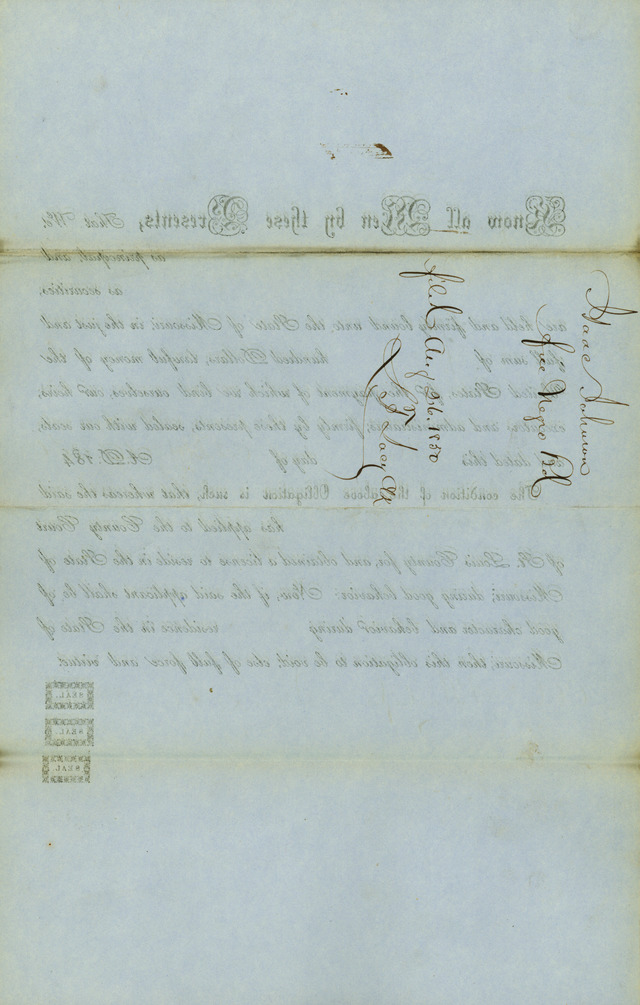 Isaac Johnson
free Negro Bd
filed Aug 26. 1850
Know all Men by these Presents, That We,
as principal, and
as securities,
are held and firmly bound unto the State of Missouri, in the just and
full sum of hundred Dollars, lawful money of the
United States, for the payment of which we bind ourselves, our heirs,
executors and administrators, firmly by these presents, sealed with our seals,
dated this day of A.D. 184
The condition of the above Obligation is such, that whereas the said
has applied to the County Court
of St. Louis County for, and obtained a license to reside in the State of
Missouri, during good behavior: Now, if the said applicant shall be of
good character and behavior during residence in the State of
Missouri, then this obligation to be void, else of full force and virtue.
SEAL.
SEAL.
SEAL